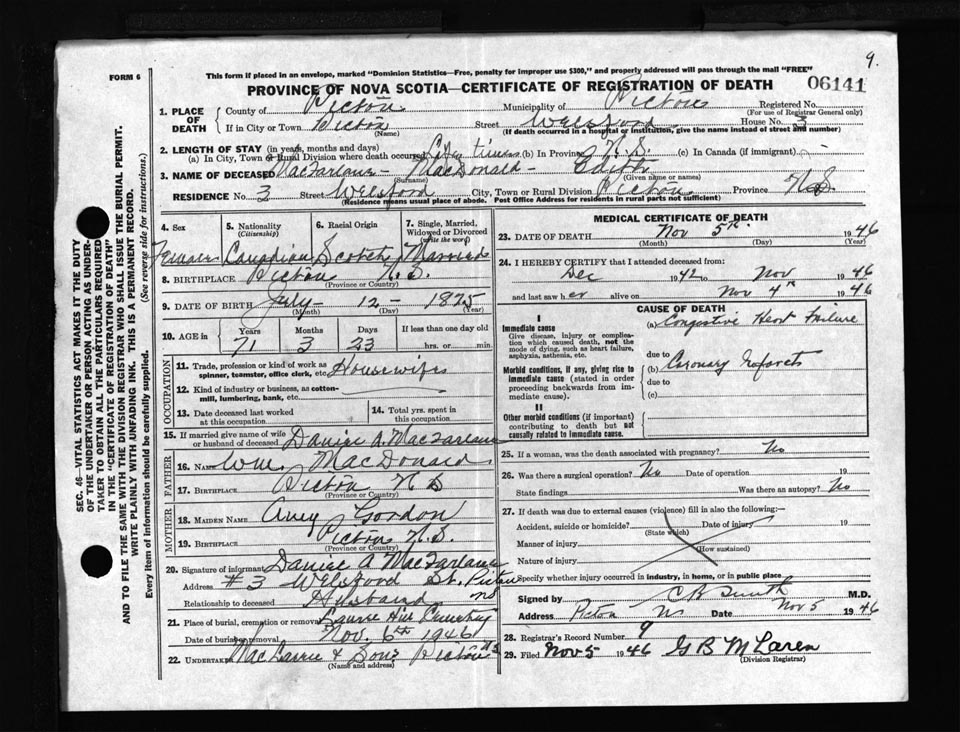 9.
FORM 6
This form if placed in an envelope, marked "Dominion Statistics—Free, penalty for improper use $300," and properly addressed will pass through the mail "FREE"
PROVINCE OF NOVA SCOTIA—CERTIFICATE OF REGISTRATION OF DEATH
06141
1. PLACE OF DEATH
County of Pictou Municipality of Pictou Registered No.
(For use of Registrar General only)
If in City or Town Pictou Street Welsford House No. 3
(Name) (If death occurred in a hospital or institution, give the name instead of street and number)
2. LENGTH OF STAY (in years, months and days)
(a) In City, Town or Rural Division where death occurred Life time (b) In Province N.S. (c) In Canada (if immigrant)
3. NAME OF DECEASED MacFarlane - MacDonald -
(Surname) (Given name or names)
RESIDENCE No. 3 Street Welsford City, Town or Rural Division Pictou Province N.S.
(Residence means usual place of abode. Post Office Address for residents in rural parts not sufficient)
4. Sex 5. Nationality (Citizenship) 6. Racial Origin 7. Single, Married, Widowed or Divorced (write the word)
Female Canadian Scotch Married
8. BIRTHPLACE Pictou N.S.
(Province or Country)
9. DATE OF BIRTH July - 12 - 1875
(Month) (Day) (Year)
10. AGE in Years Months Days If less than one day old
71 3 23 hrs. or min.
OCCUPATION
11. Trade, profession or kind of work as spinner, teamster, office clerk, etc. Housewife
12. Kind of industry or business, as cotton-mill, lumbering, bank, etc.
13. Date deceased last worked at this occupation
14. Total yrs. spent in this occupation
15. If married give name of wife or husband of deceased Daniel A. MacFarlane
FATHER
16. NAME Wm. MacDonald
17. BIRTHPLACE Pictou N S
(Province or Country)
MOTHER
18. MAIDEN NAME Gordon
19. BIRTHPLACE Pictou N.S.
(Province or Country)
20. Signature of informant Daniel A MacFarlane
Address #3 Welsford St. Pictou NS
Relationship to deceased Husband
21. Place of burial, cremation or removal Laurel Hill Cemetery
Date of burial or removal Nov. 6th 1946
22. Undertaker & Sons Pictou NS
(Name and address)
MEDICAL CERTIFICATE OF DEATH
23. DATE OF DEATH Nov 5th 1946
(Month) (Day) (Year)
24. I HEREBY CERTIFY that I attended deceased from:
Dec 1942 to Nov 1946
and last saw her alive on Nov 4th 1946
CAUSE OF DEATH
I
Immediate cause
Give disease, injury or complication which caused death, not the mode of dying, such as heart failure, asphyxia, asthenia, etc.
(a) Congestive Heart Failure
due to
Morbid conditions, if any, giving rise to immediate cause (stated in order proceeding backwards from immediate cause).
(b) Coronary Infarcts
due to
(c)
II
Other morbid conditions (if important) contributing to death but not causally related to immediate cause.
25. If a woman, was the death associated with pregnancy? No
26. Was there a surgical operation? No Date of operation 19
State findings Was there an autopsy? No
27. If death was due to external causes (violence) fill in also the following:—
Accident, suicide or homicide? Date of injury 19
(State which)
Manner of injury
(How sustained)
Nature of injury
Specify whether injury occurred in industry, in home, or in public place
Signed by C B Smith M.D.
Address Pictou NS Date Nov 5 1946
28. Registrar's Record Number 9
29. Filed Nov 5 1946 G B McLaren
(Division Registrar)
SEC. 46—VITAL STATISTICS ACT MAKES IT THE DUTY
OF THE UNDERTAKER OR PERSON ACTING AS UNDER-
TAKER TO OBTAIN ALL THE PARTICULARS REQUIRED
IN THE "CERTIFICATE OF REGISTRATION OF DEATH"
AND TO FILE THE SAME WITH THE DIVISION REGISTRAR WHO SHALL ISSUE THE BURIAL PERMIT.
WRITE PLAINLY WITH UNFADING INK. THIS IS A PERMANENT RECORD.
Every item of information should be carefully supplied. (See reverse side for instructions.)